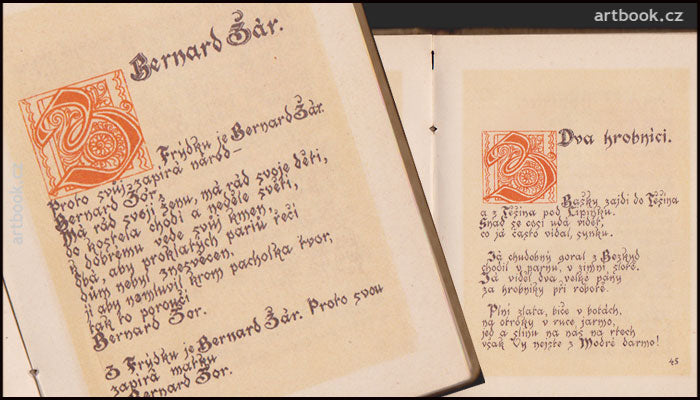 artbook.cz
artbook.cz
Bernard Žár.
Z Frýdku je Bernard Žár.
Proto svůj zapírá národ—
Bernard Žor.
Má rád svoji ženu, má rád svoje děti,
do kostela chodí a neděle světí,
k dobrému vede svůj kmen,
dbá, aby proklatých pariů řečí
dům nebyl znesvěcen.
jí aby nemluvil krom pacholka tvor,
tak to poroučí
Bernard Žor.
Z Frýdku je Bernard Žár. Proto svou
zapírá matku
Bernard Žor.
Dva hrobníci.
Z Bašky zajdi do Těšína
a z Těšína pod Lipinku.
Snad se cosi udá vidět,
co já často vídal, synku.
Já chudobný goral z Bezkyd
chodil v parnu, v zimní slotě.
Já viděl dva velké pány
za hrobníky při robotě.
Plni zlata, biče v botách,
na otroky v ruce jarmo,
jed a slinu na nás na rtech
však Vy nejste z Modré darmo!
45